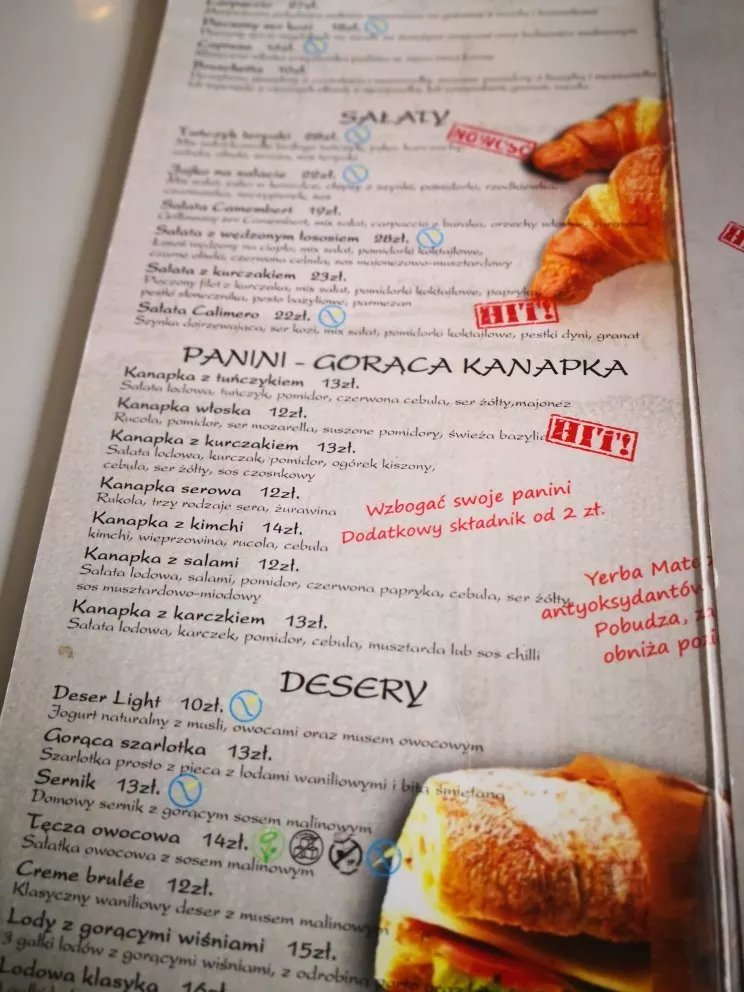 Carpaccio 27zł.
Pieczony ser kozi 18zł.
Caprese
Bruschetta 10zł.
SAŁATY
Tuńczyk teryaki 28zł.
NOWOŚĆ
Jajko na sałacie 22zł.
Mix sałat, jajko w koszulce, chipsy z szynki, pomidorki, rzodkiewka,
Sałata Camembert 19zł.
Grillowany ser Camembert, mix sałat, carpaccio z buraka, orzechy włoskie, żurawina
Sałata z wędzonym łososiem 28zł.
Łosoś wędzony na ciepło, mix sałat, pomidorki koktajlowe,
czarne oliwki, czerwona cebula, sos majonezowo-musztardowy
Sałata z kurczakiem 23zł.
Pieczony filet z kurczaka, mix sałat, pomidorki koktajlowe, papryka,
pestki słonecznika, pesto bazyliowe, parmezan
HIT!
Sałata Calimero 22zł.
Szynka dojrzewająca, ser kozi, mix sałat, pomidorki koktajlowe, pestki dyni, granat
PANINI - GORĄCA KANAPKA
Kanapka z tuńczykiem 13zł.
Sałata lodowa, tuńczyk, pomidor, czerwona cebula, ser żółty,majonez
Kanapka włoska 12zł.
Rucola, pomidor, ser mozarella, suszone pomidory, świeża bazylia
HIT!
Kanapka z kurczakiem 13zł.
Sałata lodowa, kurczak, pomidor, ogórek kiszony,
cebula, ser żółty, sos czosnkowy
Kanapka serowa 12zł.
Rukola, trzy rodzaje sera, żurawina
Wzbogać swoje panini
Dodatkowy składnik od 2 zł.
Kanapka z kimchi 14zł.
kimchi, wieprzowina, rucola, cebula
Kanapka z salami 12zł.
Sałata lodowa, salami, pomidor, czerwona papryka, cebula, ser żółty,
sos musztardowo-miodowy
Kanapka z karczkiem 13zł.
Sałata lodowa, karczek, pomidor, cebula, musztarda lub sos chilli
Yerba Mate
antyoksydantów
Pobudza, za
obniża pozi
DESERY
Deser Light 10zł.
Jogurt naturalny z musli, owocami oraz musem owocowym
Gorąca szarlotka 13zł.
Szarlotka prosto z pieca z lodami waniliowymi i bitą śmietaną
Sernik 13zł.
Domowy sernik z gorącym sosem malinowym
Tęcza owocowa 14zł.
Sałatka owocowa z sosem malinowym
Creme brulée 12zł.
Klasyczny waniliowy deser z musem malinowym
Lody z gorącymi wiśniami 15zł.
3 gałki lodów z gorącymi wiśniami, z odrobiną
Lodowa klasyka 16zł.